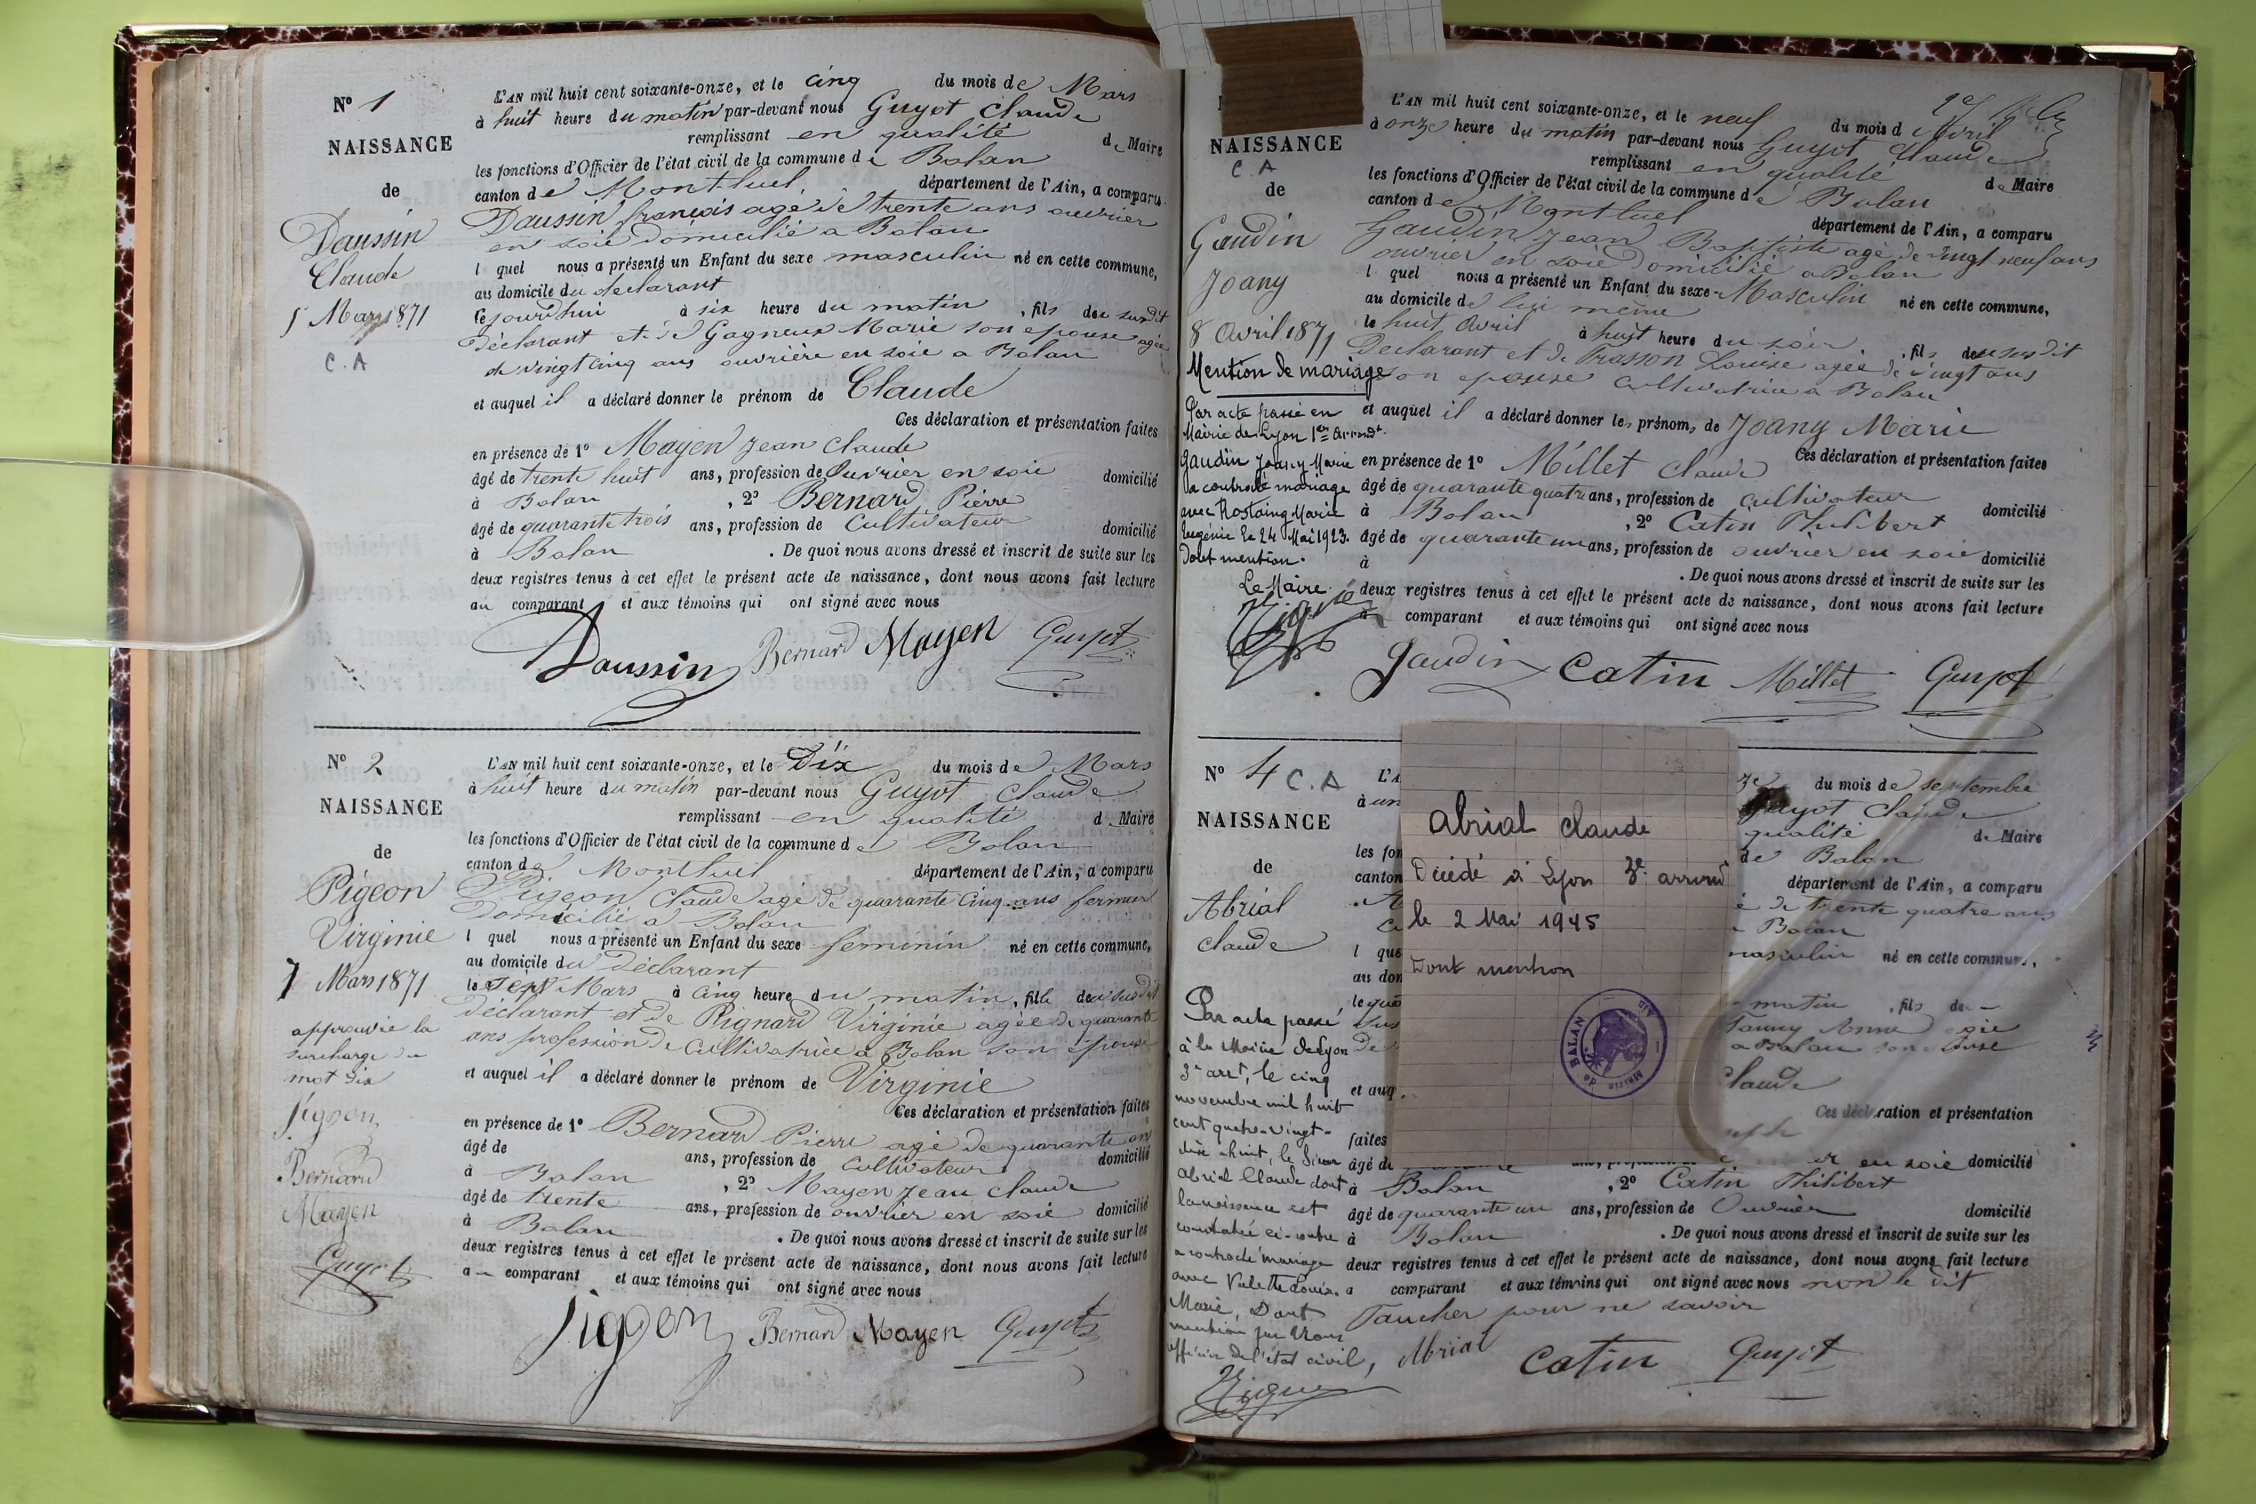 N° 1
NAISSANCE
de
Daussin
Claude
5 Mars 1871
C.A
L'AN mil huit cent soixante-onze, et le cinq du mois de Mars
à huit heure du matin par-devant nous Guyot Claude
remplissant en qualité de Maire
les fonctions d'Officier de l'état civil de la commune de Balan
canton de Montluel, département de l'Ain, a comparu
Daussin françois agé de trente ans ouvrier
en soie domicilié a Balan
l quel nous a présenté un Enfant du sexe masculin né en cette commune,
au domicile du declarant
Cejourdhui à six heure du matin, fils du susdit
déclarant et de Gagneux Marie son epouse agée
de vingt cinq ans ouvrière en soie a Balan
et auquel il a déclaré donner le prénom de Claude
Ces déclaration et présentation faites
en présence de 1° Mayen Jean Claude
âgé de trente huit ans, profession de Ouvrier en soie domicilié
à Balan, 2° Bernard Pierre
âgé de quarante trois ans, profession de Cultivateur domicilié
à Balan. De quoi nous avons dressé et inscrit de suite sur les
deux registres tenus à cet effet le présent acte de naissance, dont nous avons fait lecture
au comparant et aux témoins qui ont signé avec nous
Daussin Bernard Mayen Guyot
N° 2
NAISSANCE
de
Pigeon
Virginie
7 Mars 1871
approuvée la
surcharge du
mot dix
Pigeon
Bernard
Mayen
Guyot
L'AN mil huit cent soixante-onze, et le Dix du mois de Mars
à huit heure du matin par-devant nous Guyot Claude
remplissant en qualité de Maire
les fonctions d'Officier de l'état civil de la commune de Balan
canton de Montluel département de l'Ain, a comparu
Pigeon Claude agé de quarante cinq ans fermier
domicilié a Balan
l quel nous a présenté un Enfant du sexe feminin né en cette commune,
au domicile du déclarant
le sept Mars à cinq heure du matin, fille du susdit
déclarant et de Rignard Virginie agée de quarante
ans profession de Cultivatrice a Balan son épouse
et auquel il a déclaré donner le prénom de Virginie
Ces déclaration et présentation faites
en présence de 1° Bernard Pierre agé de quarante
âgé de ans, profession de cultivateur domicilié
à Balan, 2° Mayen Jean Claude
âgé de trente ans, profession de ouvrier en soie domicilié
à Balan. De quoi nous avons dressé et inscrit de suite sur les
deux registres tenus à cet effet le présent acte de naissance, dont nous avons fait lecture
a comparant et aux témoins qui ont signé avec nous
Pigeon Bernard Mayen Guyot
NAISSANCE
C.A
de
Gaudin
Joany
8 Avril 1871
Mention de mariage
Par acte passé en
Mairie de Lyon 1er Arrondt.
Gaudin Joany Marie
a contracté mariage
avec Rostaing Marie
Eugénie le 24 Mai 1923.
Dont mention.
Le Maire
L'AN mil huit cent soixante-onze, et le neuf du mois d Avril
à onze heure du matin par-devant nous Guyot Claude
remplissant en qualité de Maire
les fonctions d'Officier de l'état civil de la commune de Balan
canton de Montluel département de l'Ain, a comparu
Gaudin Jean Baptiste agé de vingt neuf ans
ouvrier en soie domicilié a Balan
l quel nous a présenté un Enfant du sexe Masculin né en cette commune,
au domicile de lui même
le huit Avril à huit heure du soir, fils du susdit
Declarant et de Frasson Louise agée de vingt ans
son epouse cultivatrice a Balan
et auquel il a déclaré donner les prénoms de Joany Marie
Ces déclaration et présentation faites
en présence de 1° Millet Claude
âgé de quarante quatre ans, profession de cultivateur domicilié
à Balan, 2° Catin Philibert
âgé de quarante un ans, profession de ouvrier en soie domicilié
à . De quoi nous avons dressé et inscrit de suite sur les
deux registres tenus à cet effet le présent acte de naissance, dont nous avons fait lecture
a comparant et aux témoins qui ont signé avec nous
Gaudin Catin Millet Guyot
N° 4 C.A
NAISSANCE
de
Abrial
Claude
Par acte passé
à la Mairie de Lyon
3e arrt, le cinq
novembre mil huit
cent quatre-vingt-
dix-huit, le Sieur
Abrial Claude dont
la naissance est
constatée ci-contre
a contracté mariage
avec Valette Louise
Marie, Dont
mention par nous
officier de l'état civil,
Abrial Claude
Décédé à Lyon 3e arrond
le 2 Mai 1945
Dont mention
Mairie de BALAN Ain
du mois de septembre
Guyot Claude
qualité de Maire
de Balan
département de l'Ain, a comparu
de trente quatre ans
a Balan
masculin né en cette commune,
matin, fils de
Fanny Anne agée
a Balan son épouse
Claude
Ces déclaration et présentation
faites
âgé de en soie domicilié
à Balan, 2° Catin Philibert
âgé de quarante un ans, profession de Ouvrier domicilié
à Balan. De quoi nous avons dressé et inscrit de suite sur les
deux registres tenus à cet effet le présent acte de naissance, dont nous avons fait lecture
a comparant et aux témoins qui ont signé avec nous non le dit
Faucher pour ne savoir
Abrial Catin Guyot